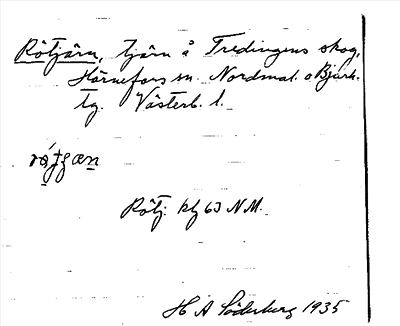 Rötjärn, tjärn å Tredingens skog,
Hörnefors sn. Nordmal. o Bjurh.
tg. Västerb. l.
Rötj. kbl 63 N.M.
H A Söderberg 1935